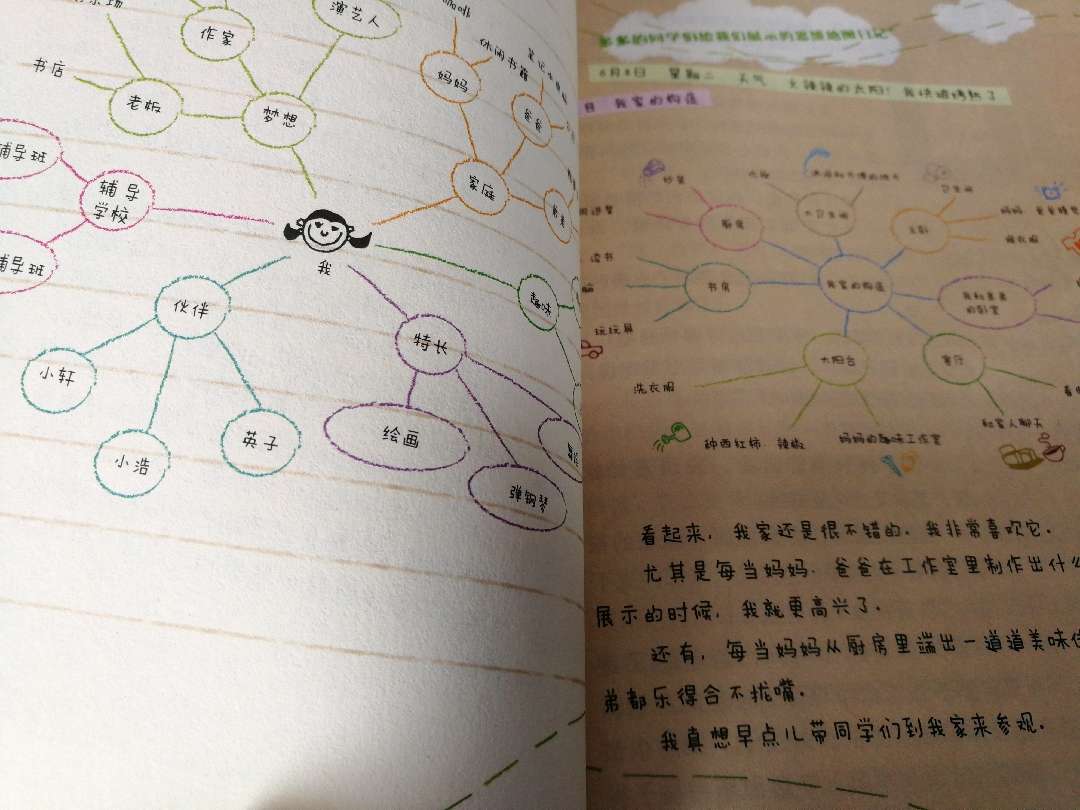 演艺人
作家
书店
老板
梦想
妈妈
休闲书籍
爸爸
家庭
辅导班
辅导
学校
辅导班
我
趣味
伙伴
特长
小轩
绘画
英子
小浩
弹钢琴
6月8日 星期二 天气 火辣辣的太阳！我快被烤熟了
我家的构造
炒菜
卫生间
厨房
大卫生间
主卧
读书
书房
我家的构造
我和弟弟
的卧室
玩玩具
大阳台
客厅
洗衣服
和客人聊天
种西红柿、辣椒
妈妈的趣味工作室
看起来，我家还是很不错的。我非常喜欢它。
尤其是每当妈妈、爸爸在工作室里制作出什么
展示的时候，我就更高兴了。
还有，每当妈妈从厨房里端出一道道美味佳
弟都乐得合不拢嘴。
我真想早点儿带同学们到我家来参观。